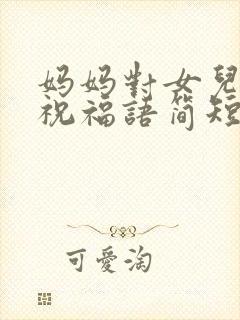 妈妈對女兒
祝福語简短
可愛淘